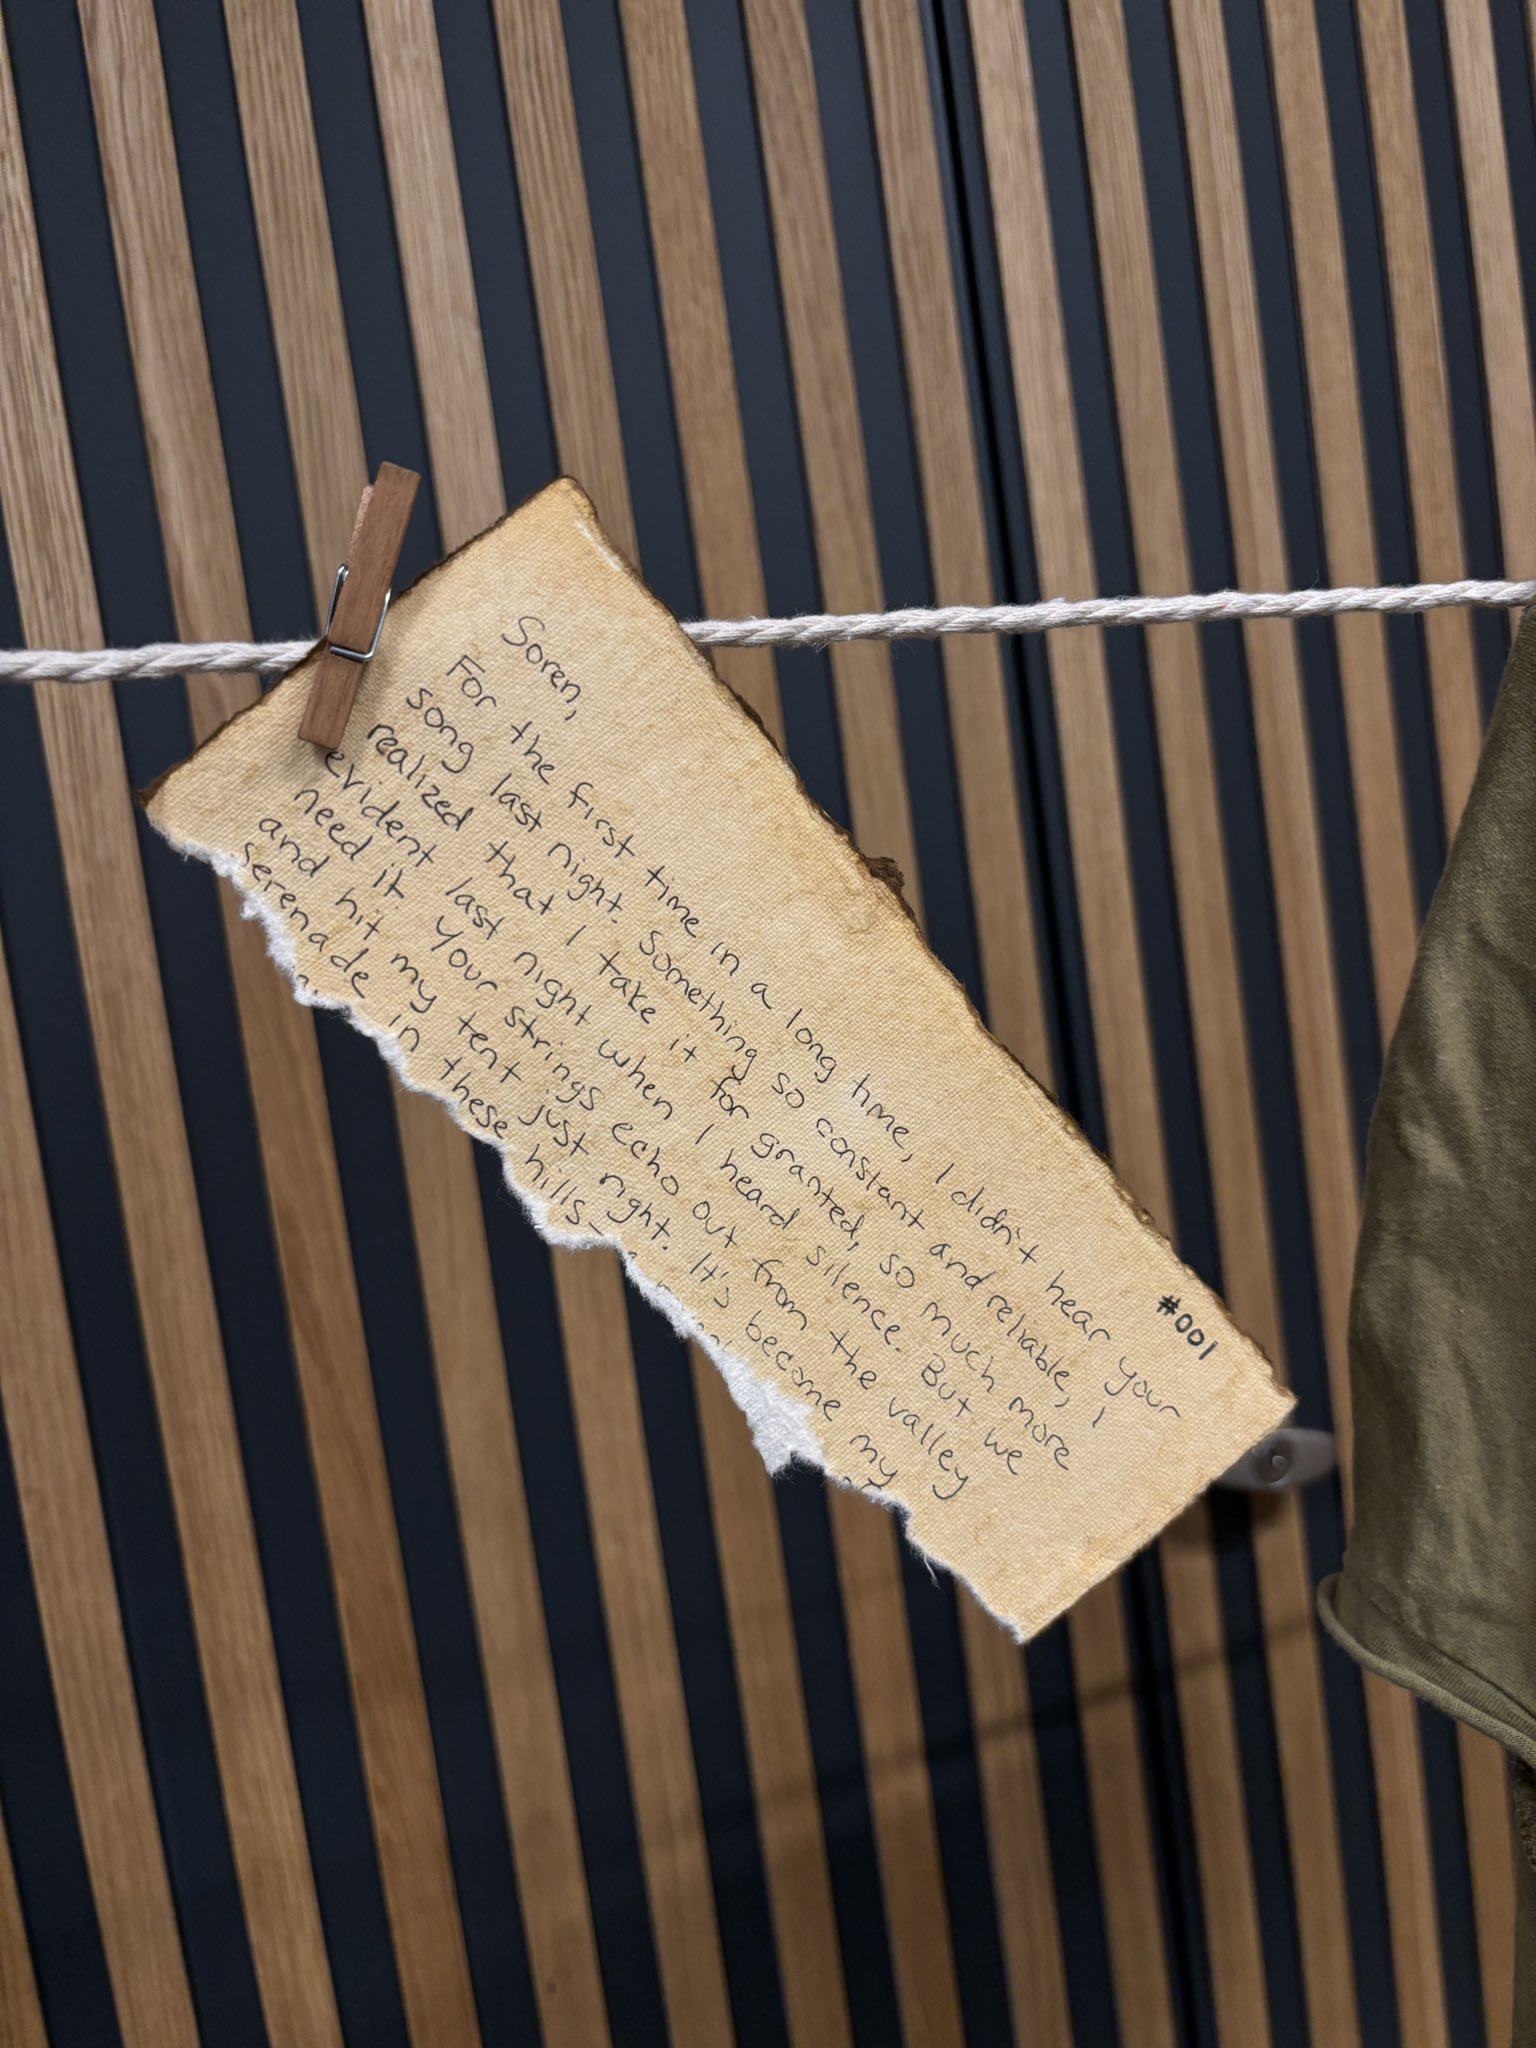 #001
Soren,
For the first time in a long time, I didn't hear your
song last night. Something so constant and reliable, I
realized that I take it for granted, so much more
evident last night when I heard silence. But we
need it. Your strings echo out from the valley
and hit my tent just right. It's become my
serenade in these hills